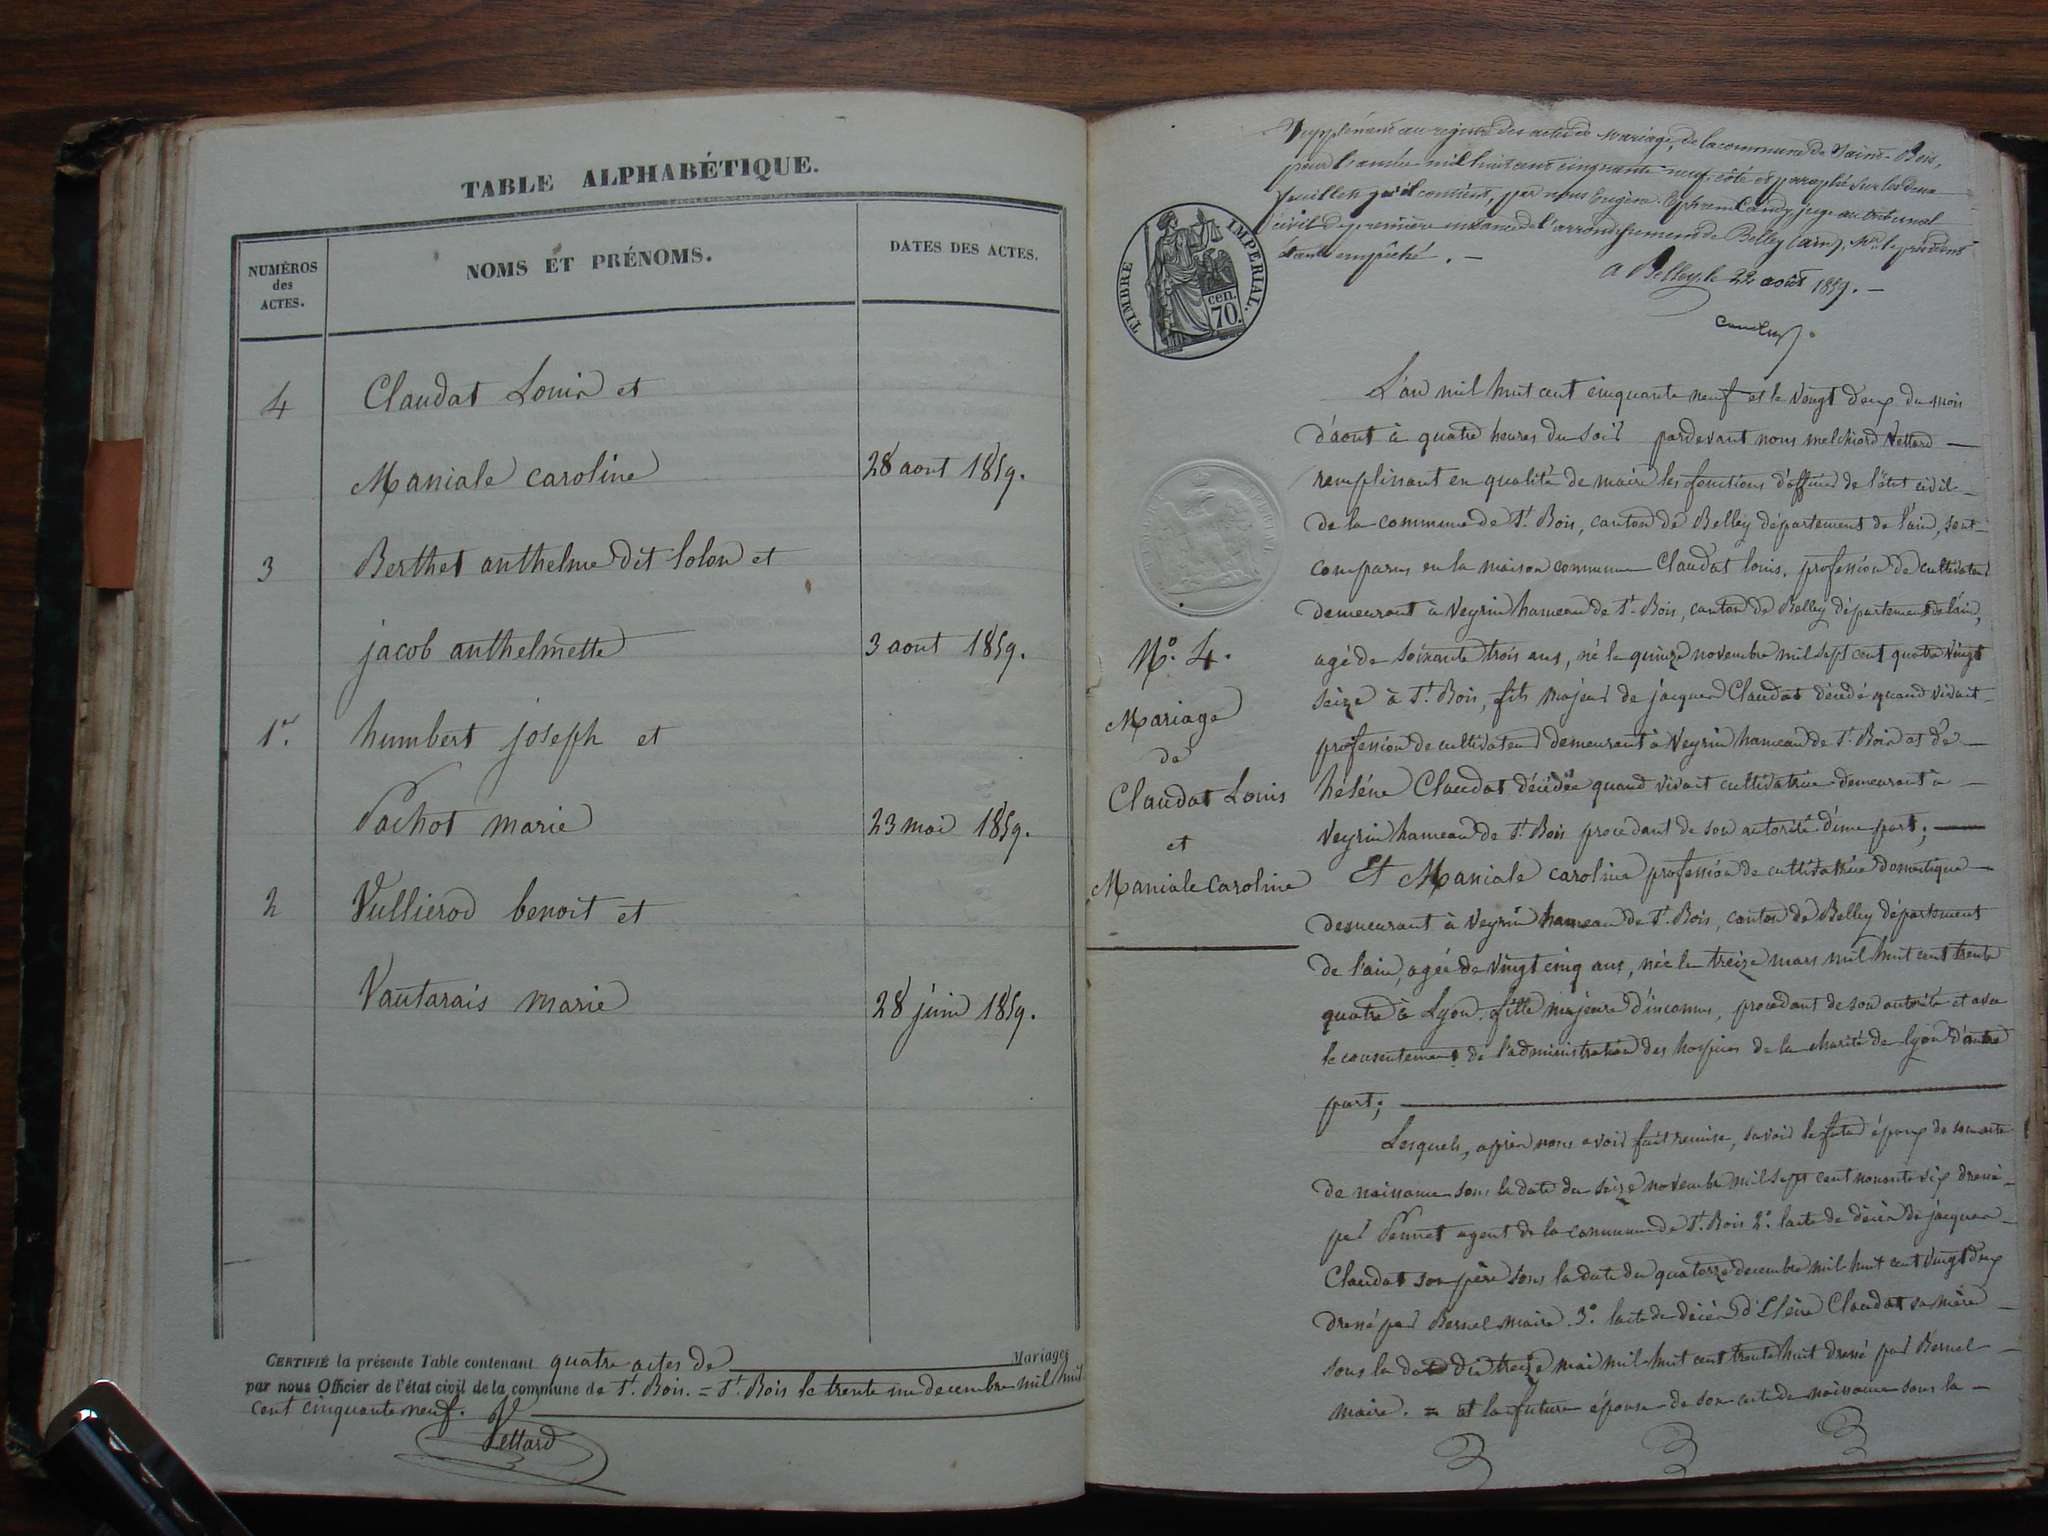 TABLE ALPHABÉTIQUE.
NUMÉROS des ACTES.
NOMS ET PRÉNOMS.
DATES DES ACTES.
4 Claudat Louis et
Maniale caroline 28 aout 1859.
3 Berthet anthelme dit lolon et
jacob anthelmette 3 aout 1859.
1er humbert joseph et
Pachot marie 23 mai 1859.
2 Vullierod benoit et
Vautarais marie 28 juin 1859.
CERTIFIÉ la présente Table contenant quatre actes de Mariages
par nous Officier de l'état civil de la commune de St. Bois. = St. Bois le trente un decembre mil huit
cent cinquante neuf.
Vettard
Supplément au registre des actes de Mariage, de la commune de Saint-Bois,
pour l'année mil huit cent cinquante neuf, côté et paraphé sur les deux
feuillets qu'il contient, par nous Eugène Ephrem Candy juge au tribunal
civil de première instance de l'arrondissement de Belley (ain), Mr le président
étant empêché. -
a Belley, le 22 août 1859. -
TIMBRE IMPERIAL.
70. cen.
L'an mil huit cent cinquante neuf et le vingt deux du mois
d'aout à quatre heures du soir pardevant nous melchiord Vettard
remplissant en qualité de maire les fonctions d'officier de l'état civil
de la commune de St. Bois, canton de Belley département de l'ain, sont
comparus en la maison commune Claudat louis, profession de cultivateur
demeurant à Veyrin hameau de St. Bois, canton de Belley département de l'ain,
agé de soixante trois ans, né le quinze novembre mil sept cent quatre vingt
seize à St. Bois, fils majeur de jacques Claudat décédé quand vivait
profession de cultivateur demeurant à Veyrin hameau de St. Bois et de
héléne Claudat décédée quand vivait cultivatrice demeurant à
Veyrin hameau de St. Bois procedant de son autorité d'une part;
No. 4.
Mariage
de
Claudat Louis
et
Maniale Caroline
Et Maniale caroline profession de cultivatrice domestique
demeurant à Veyrin hameau de St. Bois, canton de Belley département
de l'ain, agée de vingt cinq ans, née le treize mars mil huit cent trente
quatre à Lyon, fille majeure d'inconnus, procedant de son autorité et avec
le consentement de l'administration des hospices de la charité de lyon d'autre
part;
Lesquels, après nous avoir fait remise, savoir le futur époux de son acte
de naissance sous la date du seize novembre mil sept cent nonante six dressé
par Pennet agent de la commune de St. Bois 2o. l'acte de décès de jacques
Claudat son père sous la date du quatorze decembre mil huit cent vingt deux
dressé par Bernel maire 3o. l'acte de décès d' Claudat sa mère
sous la date du treize mai mil huit cent trente huit dressé par Bernel
maire. = et la future épouse de son acte de naissance sous la